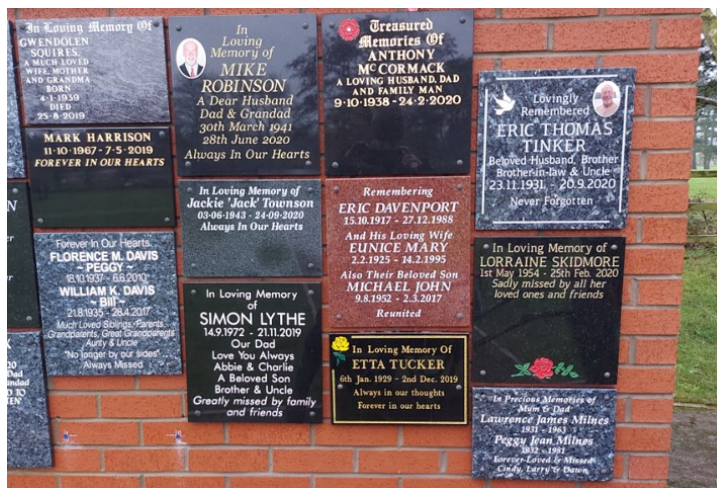 In Loving Memory Of
GWENDOLEN
SQUIRES,
A MUCH LOVED
WIFE, MOTHER
AND GRANDMA
BORN
4-1-1939
DIED
25-8-2019
MARK HARRISON
11-10-1967 - 7-5-2019
FOREVER IN OUR HEARTS
Forever In Our Hearts
FLORENCE M. DAVIS
~ PEGGY ~
18.10.1937 - 6.6.2010
WILLIAM K. DAVIS
~ Bill ~
21.8.1935 - 28.4.2017
Much Loved Siblings, Parents,
Grandparents, Great Grandparents
Aunty & Uncle
"No longer by our sides"
Always Missed
In
Loving
Memory of
MIKE
ROBINSON
A Dear Husband
Dad & Grandad
30th March 1941
28th June 2020
Always In Our Hearts
In Loving Memory of
Jackie 'Jack' Townson
03-06-1943 - 24-09-2020
Always In Our Hearts
In Loving Memory
of
SIMON LYTHE
14.9.1972 - 21.11.2019
Our Dad
Love You Always
Abbie & Charlie
A Beloved Son
Brother & Uncle
Greatly missed by family
and friends
Treasured
Memories Of
ANTHONY
McCORMACK
A LOVING HUSBAND, DAD
AND FAMILY MAN
9-10-1938 - 24-2-2020
Remembering
ERIC DAVENPORT
15.10.1917 - 27.12.1988
And His Loving Wife
EUNICE MARY
2.2.1925 - 14.2.1995
Also Their Beloved Son
MICHAEL JOHN
9.8.1952 - 2.3.2017
Reunited
In Loving Memory Of
ETTA TUCKER
6th Jan. 1929 - 2nd Dec. 2019
Always in our thoughts
Forever in our hearts
Lovingly
Remembered
ERIC THOMAS
TINKER
Beloved Husband, Brother
Brother-in-law & Uncle
23.11.1931 - 20.9.2020
Never Forgotten
In Loving Memory of
LORRAINE SKIDMORE
1st May 1954 - 25th Feb. 2020
Sadly missed by all her
loved ones and friends
In Precious Memories of
Mum & Dad
Lawrence James Milnes
1931 - 1963
Peggy Jean Milnes
1932 - 1981
Forever Loved & Missed
Cindy, Larry & Dawn